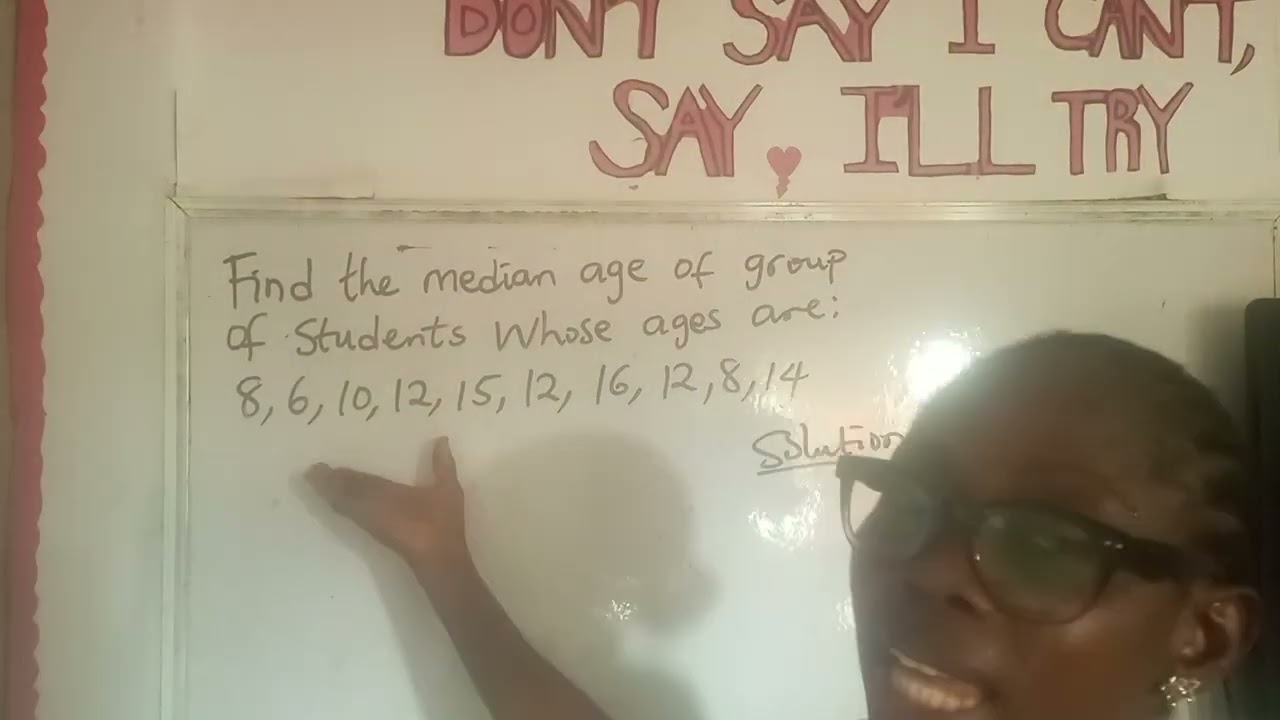 DON'T SAY I CAN'T,
SAY, I'LL TRY
Find the median age of group
of Students whose ages are:
8, 6, 10, 12, 15, 12, 16, 12, 8, 14
Solution